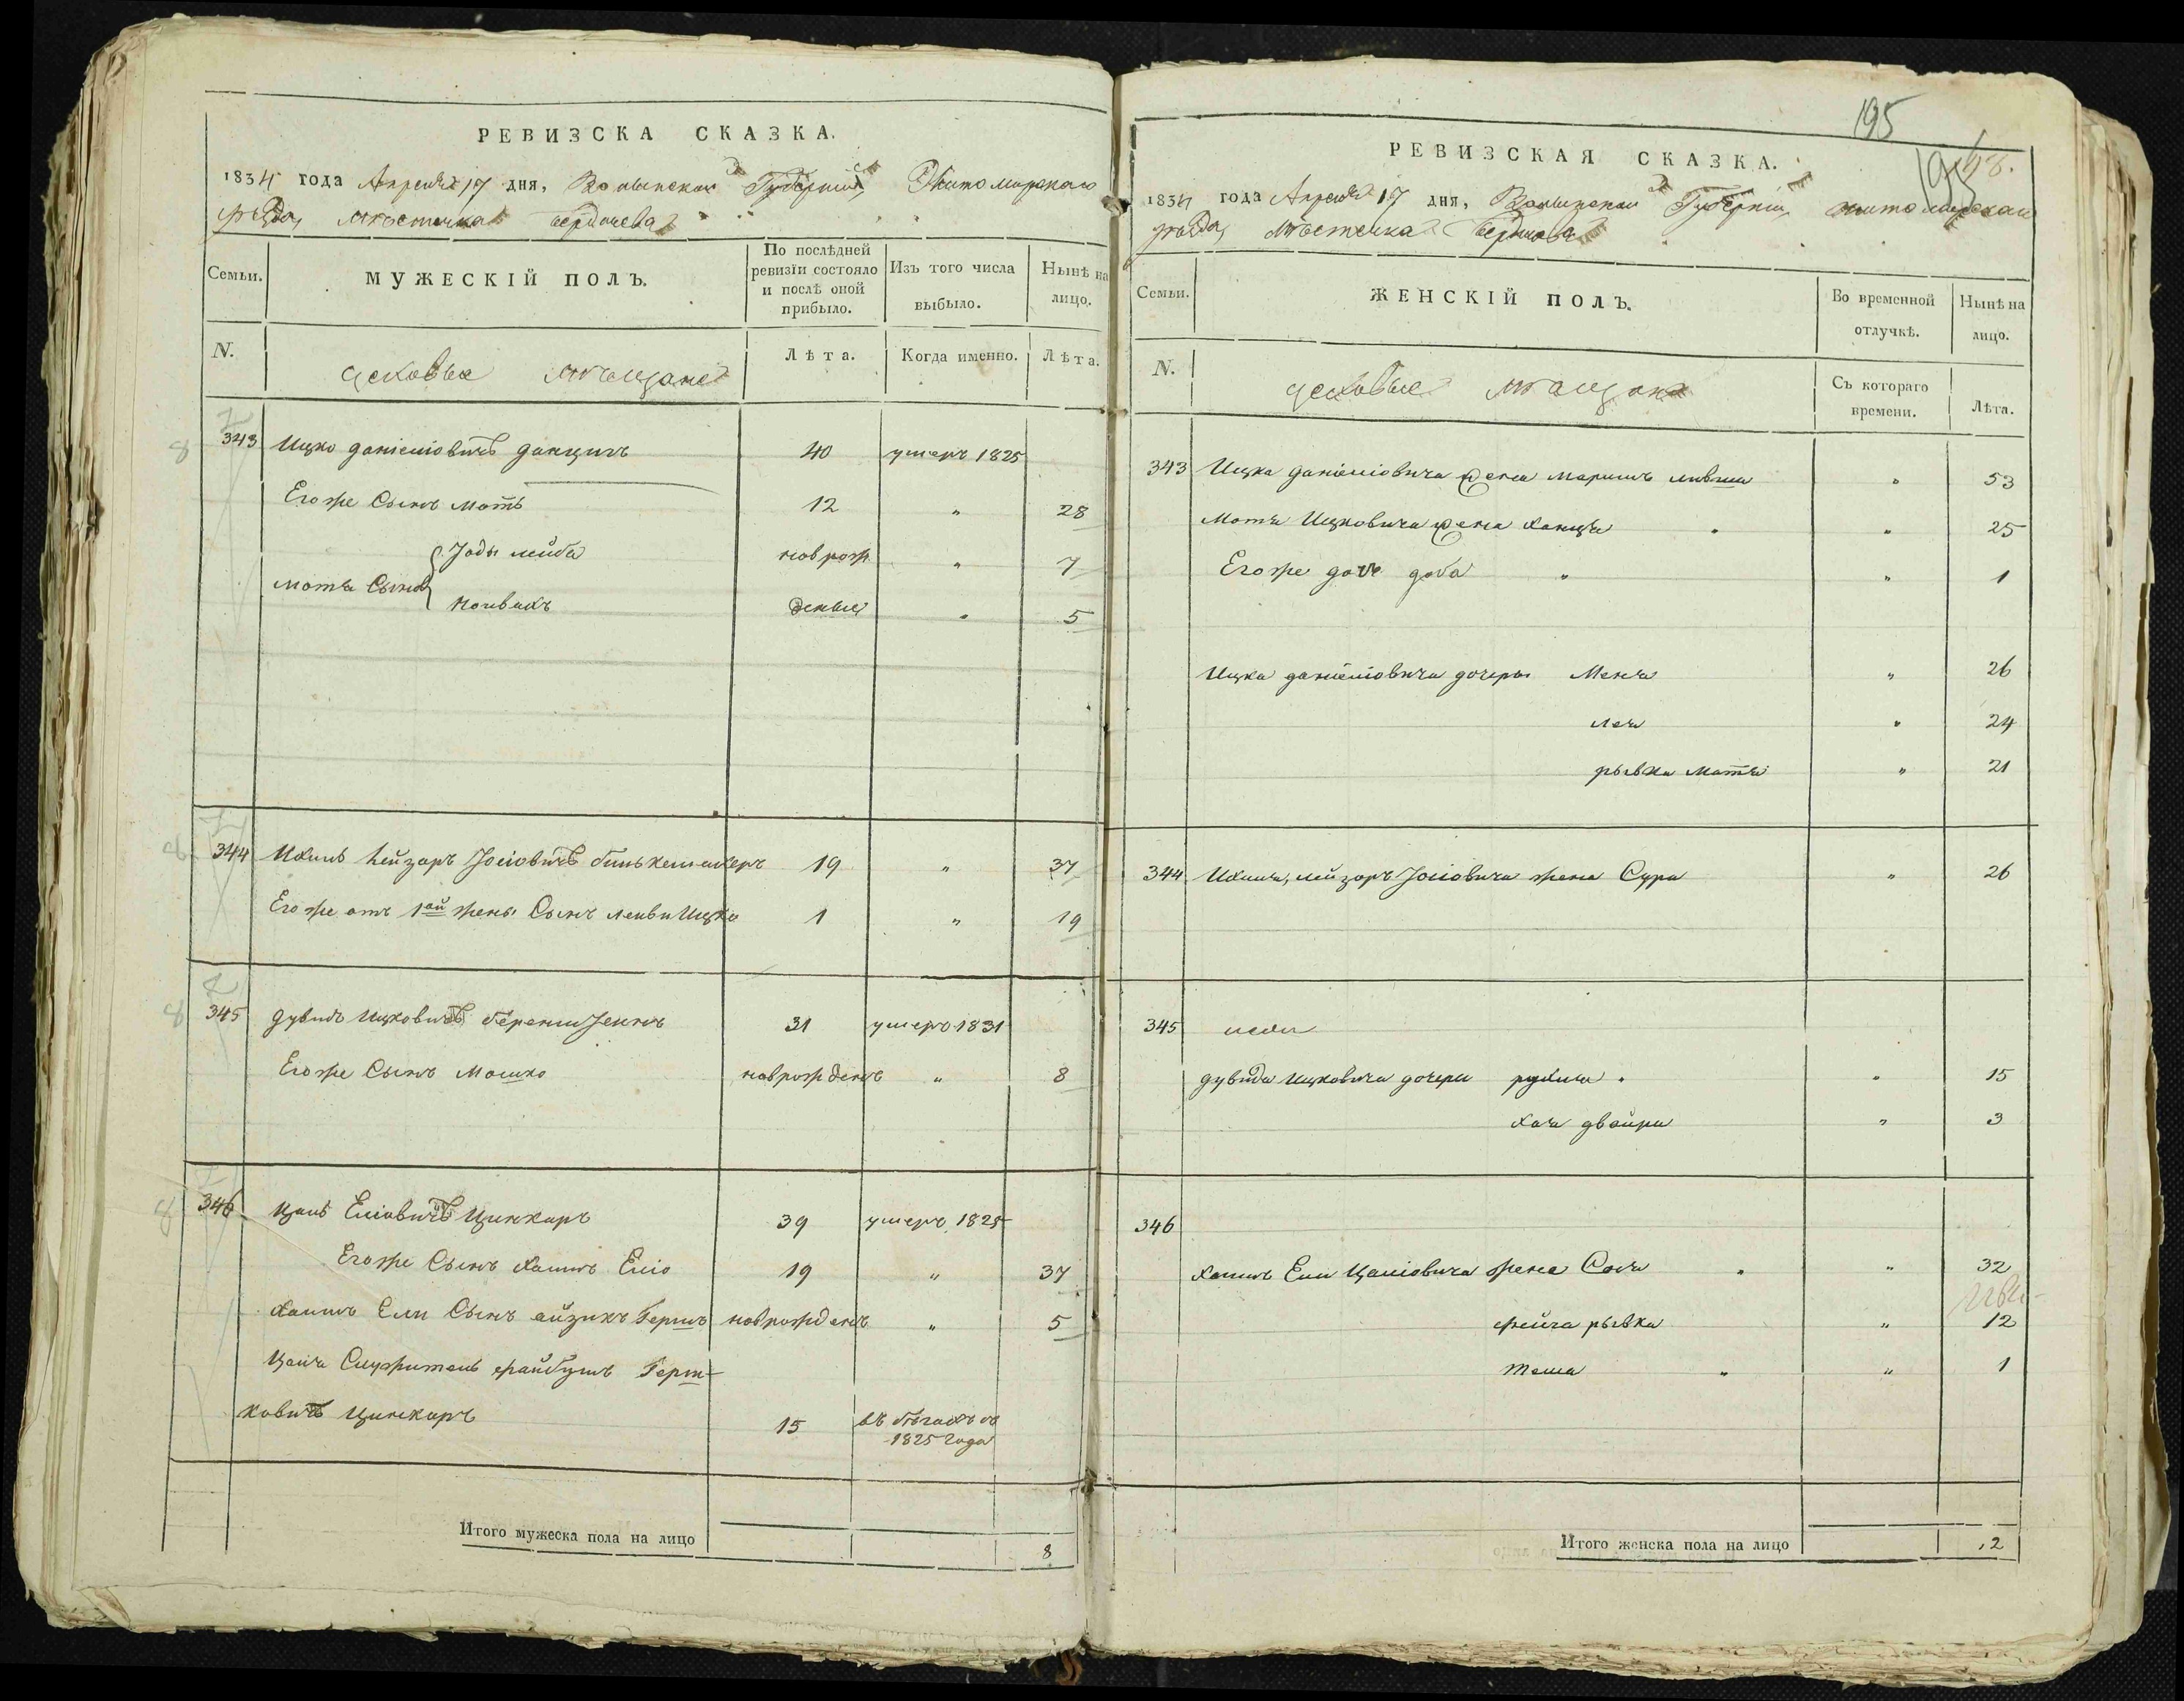 РЕВИЗСКА СКАЗКА.
1834 года Апреля 17 дня, Волынской Губерніи, Житомирскаго
уѣзда, мѣстечка Бердичева
Семьи.
МУЖЕСКІЙ ПОЛЪ.
По послѣдней ревизіи состояло и послѣ оной прибыло.
Изъ того числа выбыло.
Нынѣ на лицо.
N.
цеховые мѣщане
Лѣта.
Когда именно.
Лѣта.
343 Ицко даніеліовичъ данцигъ 40 умеръ 1825
Егоже Сынъ моть 12 " 28
Іоды лейба новрож " 7
мотя Сынов
деные " 5
344 Ихиль лейзоръ Іосіовичъ 19 " 37
Егоже отъ 1ой жены Сынъ Ицко 1 " 19
345 дувидъ Ицковичъ 31 умеръ 1831
Егоже Сынъ Мошко новрожденъ " 8
346 Цаль Еліовичъ Цинкоръ 39 умеръ 1825
Егоже Сынъ хаимъ Еліо 19 " 37
хаимъ Ели Сынъ айзикъ Гершъ новрожденъ " 5
Цаля Герш-
ковичъ Цинкоръ 15 въ бѣгахъ съ
1825 года
Итого мужеска пола на лицо 8
195
РЕВИЗСКАЯ СКАЗКА.
1834 года Апреля 17 дня, Волынской Губерніи, житомирскаго
уѣзда, мѣстечка Бердичева
Семьи.
ЖЕНСКІЙ ПОЛЪ.
Во временной отлучкѣ.
Нынѣ на лицо.
N.
цеховые мѣщане
Съ котораго времени.
Лѣта.
343 Ицка даніеліовича жена " 53
Мотя Ицковича жена ханця " 25
Егоже дочь доба " 1
Ицка даніеліовича дочеры Меня " 26
лея " 24
рывка матля " 21
344 Ихиля, лейзоръ Іосіовича жена Сура " 26
345
дувида Ицковича дочери рухля " 15
хая двойра " 3
346
хаимъ Ели Цаліовича жена Сося " 32
фейга рывка " 12
теша " 1
Итого женска пола на лицо 12